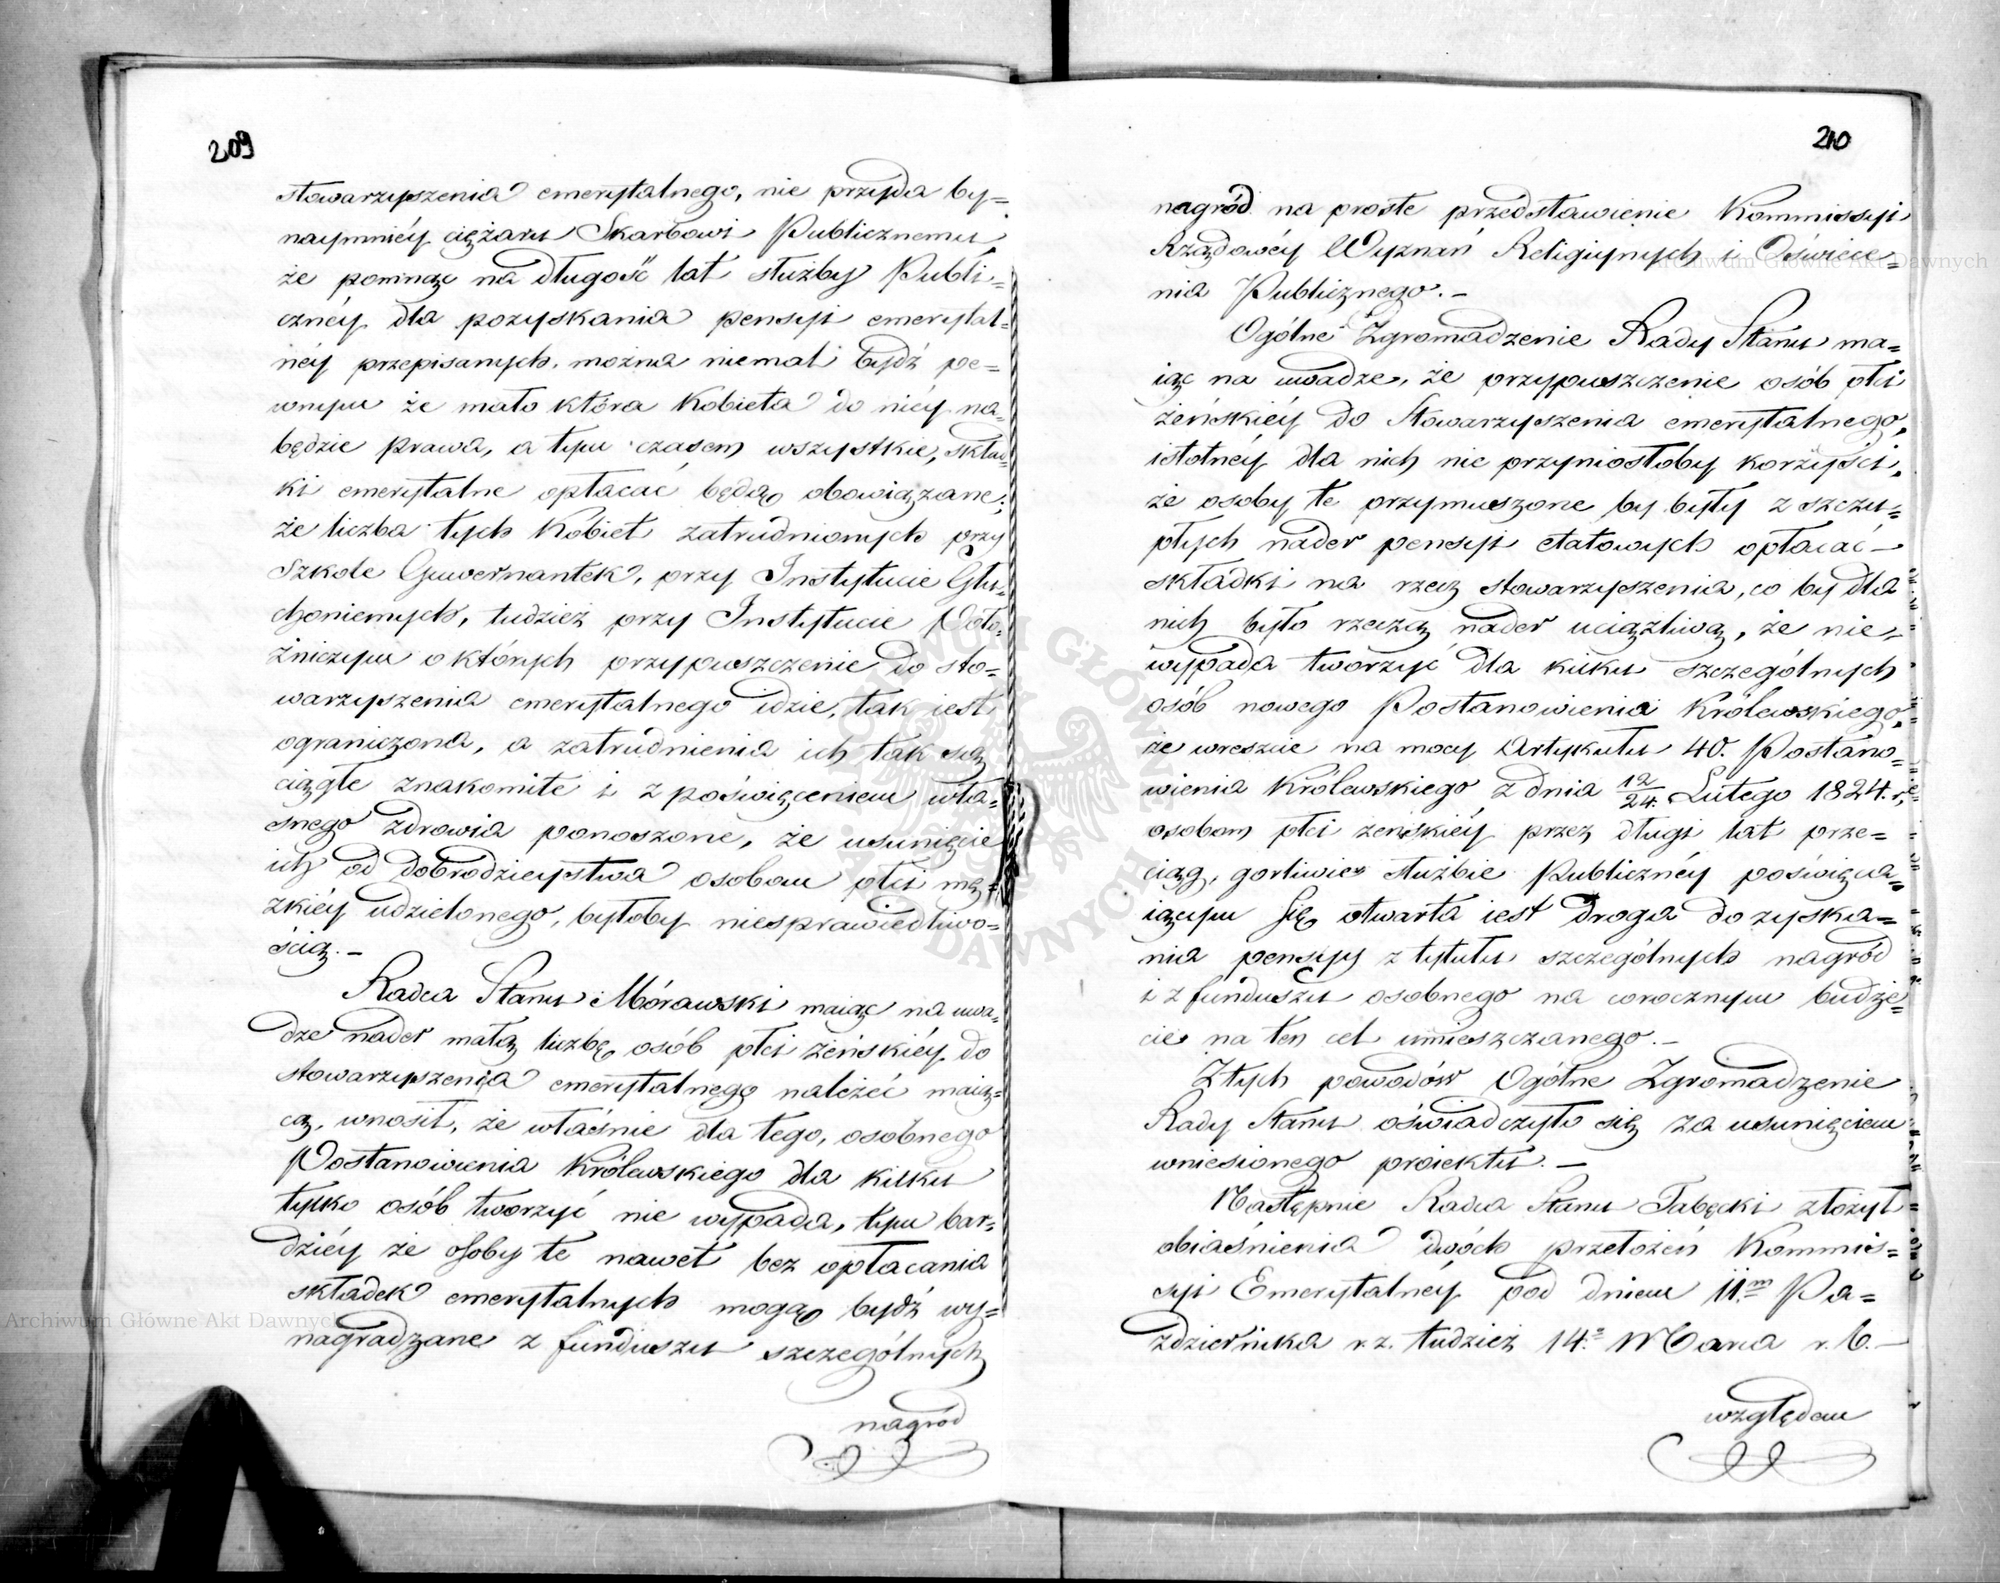 209
stowarzyszenia emerytalnego, nie przyda by=
naymnićy ciężaru Skarbowi Publicznemu,
że pomnąc na długość lat służby Publi=
cznéy dla pozyskania pensyi emerytal=
néy przepisanych, można niemal bydź pe=
wnym że mało która Kobieta do niéy na=
będzie prawa, a tym czasem wszystkie, skład=
ki emerytalne opłacać będą obowiązane;
że liczba tych Kobiet zatrudnionych przy
Szkole Guwernantek, przy Instytucie Głu=
choniemych, tudzież przy Instytucie Poło=
żniczym o których przypuszczenie do sto=
warzyszenia emerytalnego idzie, tak iest
ograniczona, a zatrudnienia ich tak są
ciągłe znakomite i z poświęceniem wła=
snego zdrowia ponoszone, że usunięcie
ich od dobrodzieystwa osobom płci mę=
zkiéy udzielonego, byłoby niesprawiedliwo=
ścią.–
Radca Stanu Mórawski maiąc na uwa=
dze nader małą liczbę osób płci żeńskiéy do
stowarzyszenia emerytalnego należéć maią=
cą, wnosił, że właśnie dla tego, osobnego
Postanowienia Królewskiego dla kilku
tylko osób tworzyć nie wypada, tym bar=
dziéy że osoby te nawet bez opłacania
składek emerytalnych mogą bydź wy=
nagradzane z funduszu szczególnych
nagród
210
nagród na proste przedstawienie Kommissyi
Rządowéy Wyznań Religiynych i Oświece=
nia Publicznego.–
Ogólne Zgromadzenie Rady Stanu ma=
iąc na uwadze, że przypuszczenie osób płci
żeńskiéy do Stowarzyszenia emerytalnego,
istotnéy dla nich nie przyniosłoby korzyści,
że osoby te przymuszone by były z szczu=
płych nader pensyi etatowych opłacać –
składki na rzecz stowarzyszenia, co by dla
nich było rzeczą nader uciążliwą, że nie
wypada tworzyć dla kilku szczególnych
osób nowego Postanowienia Królewskiego,
że wreszcie na mocy Artykułu 40. Postano=
wienia Królewskiego z dnia 12/24. Lutego 1824. r,
osobom płci żeńskiéy przez długi lat prze=
ciąg, gorliwie służbie Publicznéy poświęca=
iącym się otwarta iest droga do zyska=
nia pensyy z tytułu szczególnych nagród
i z funduszu osobnego na corocznym budże=
cie na ten cel umieszczanego.–
Z tych powodów Ogólne Zgromadzenie
Rady Stanu oświadczyło się za usunięciem
wniesionego proiektu.–
Następnie Radca Stanu Tabęcki złożył
obiaśnienia dwóch przełożeń Kommis=
syi Emerytalnéy pod dniem 11.m Pa=
zdziernika r. z. tudzież 14.º Marca r. b.–
względem
Archiwum Główne Akt Dawnych
Archiwum Główne Akt Dawnych
ARCHIWUM GŁÓWNE AKT DAWNYCH